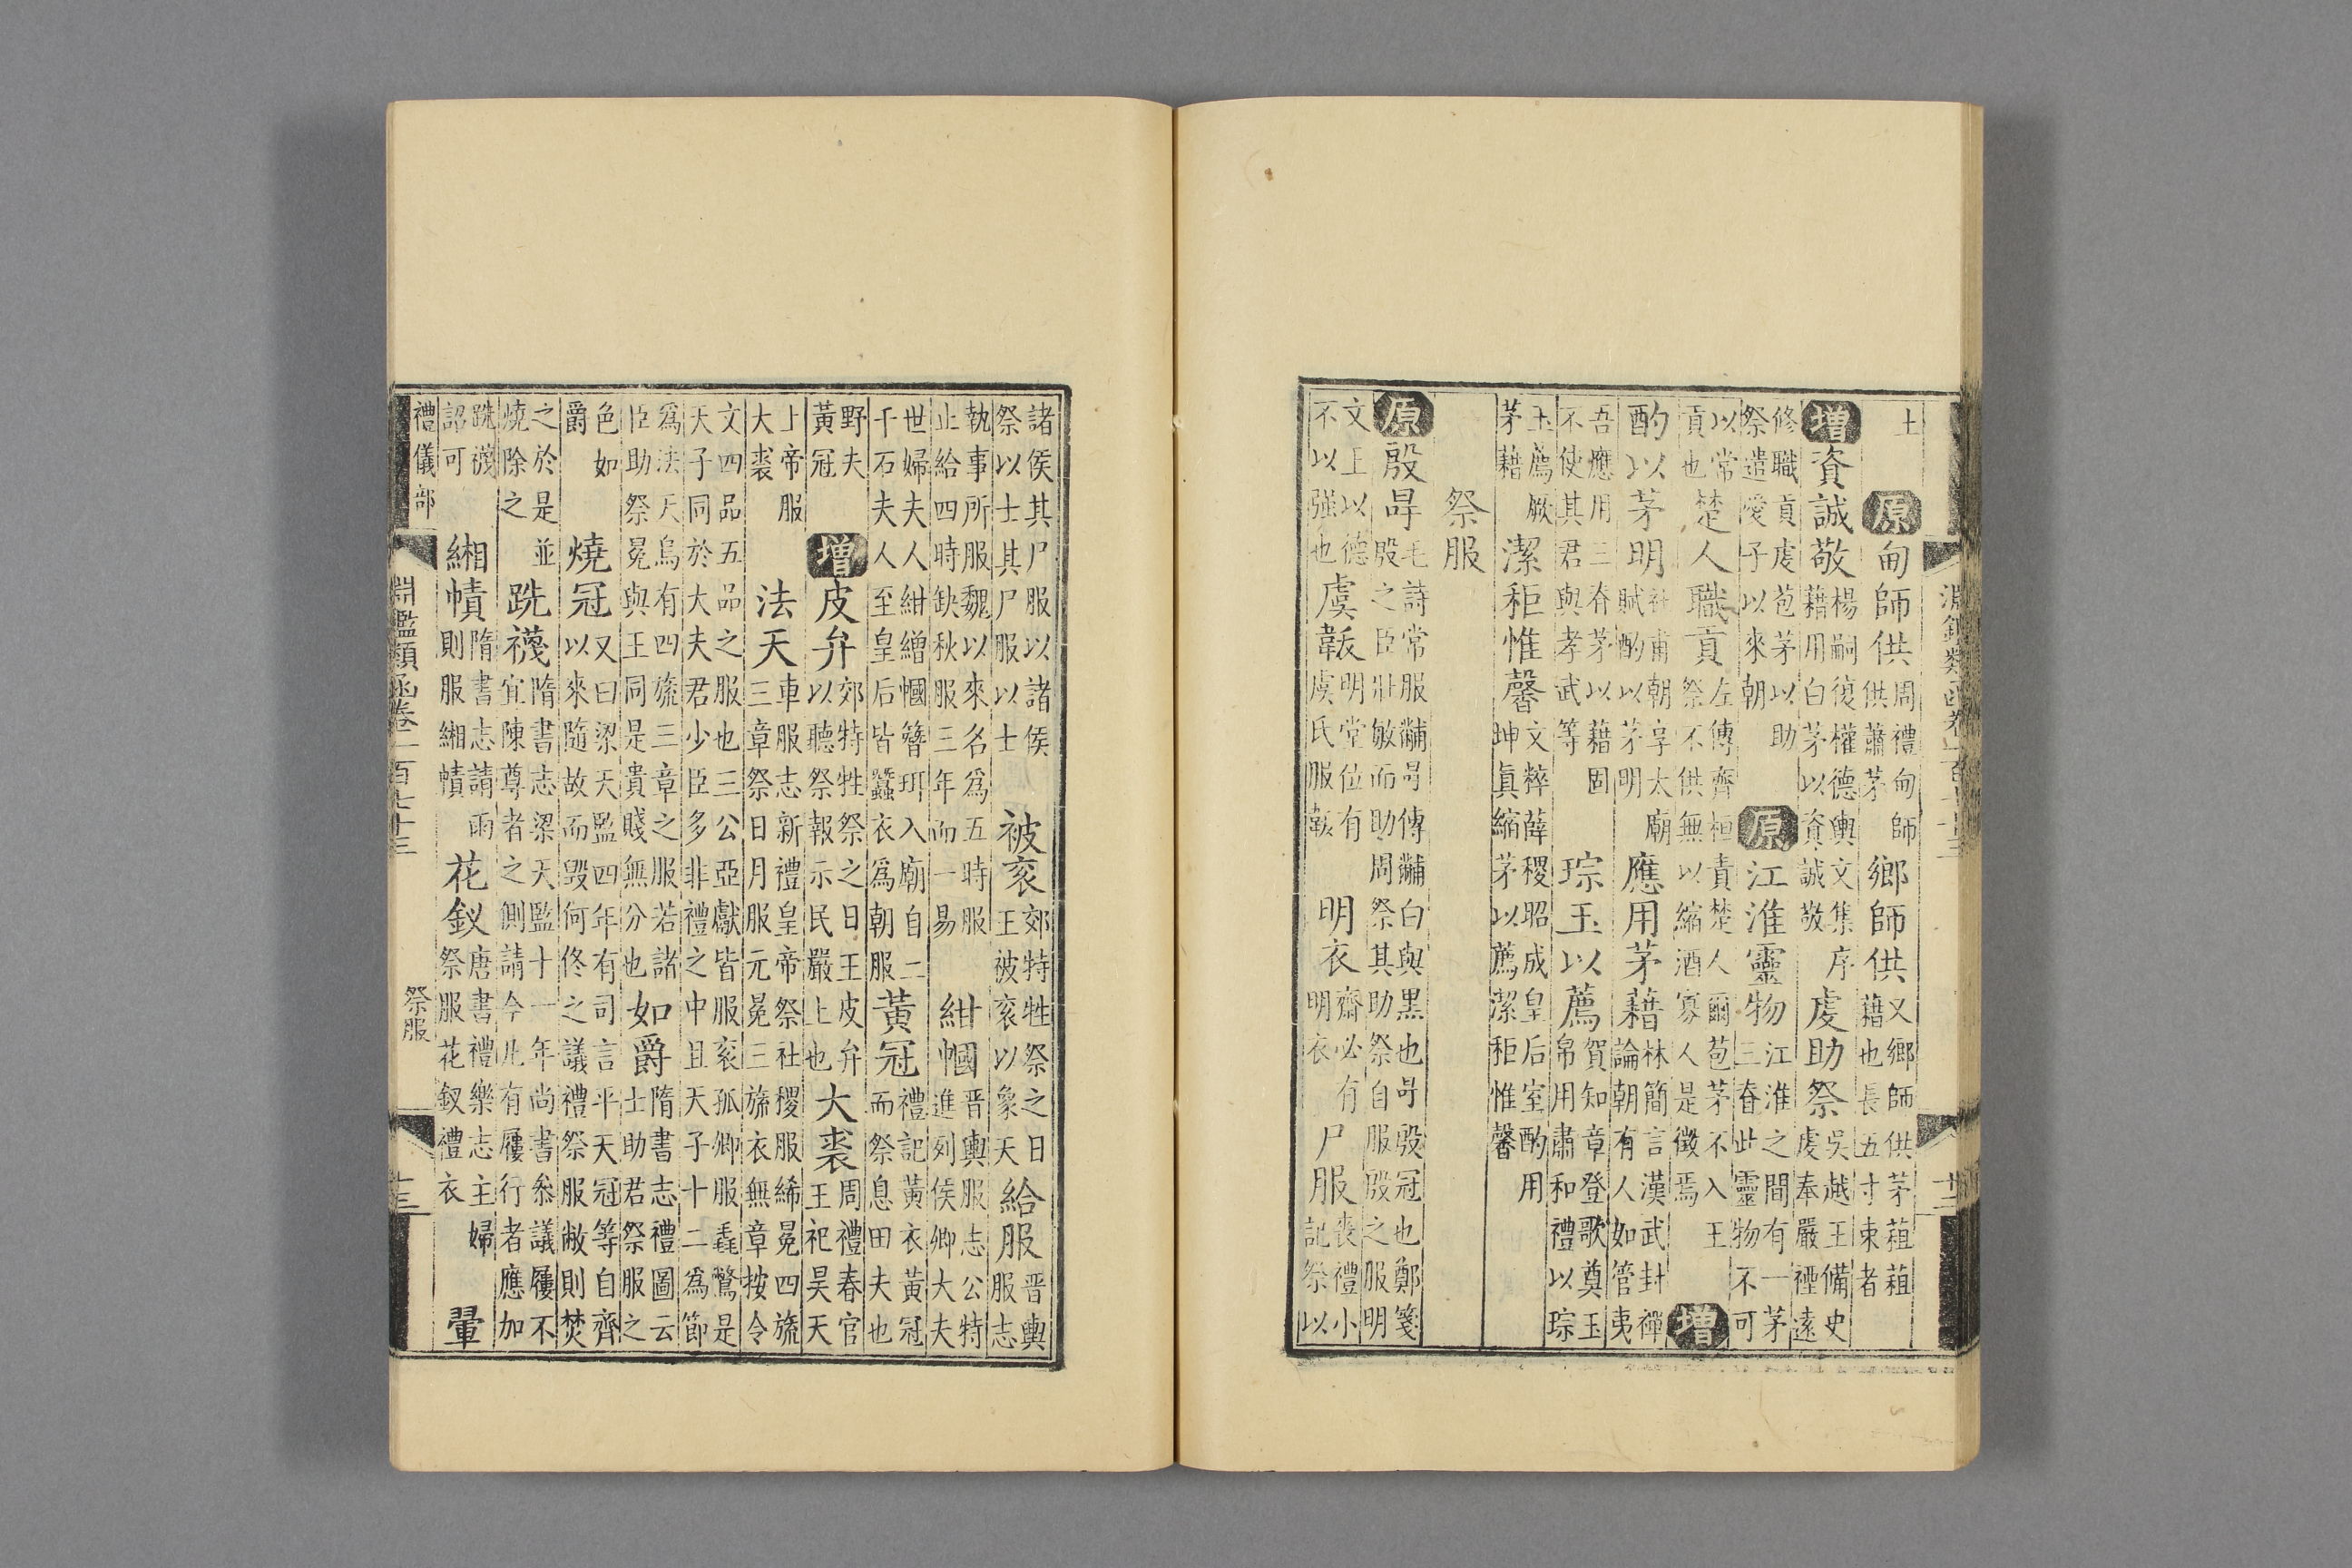 淵鑑類函卷一百七十三 十三
土 原 甸師供 周禮甸師供蕭茅 鄉師供 又鄉師供茅蒩蒩藉也長五寸束者
增 資誠敬 楊嗣復權德輿文集序藉用白茅以資誠敬 虔助祭 吳越王備史虔奉嚴禋遠
修職貢虔苞茅以助祭遣愛子以來朝 原 江淮靈物 江淮之間有一茅三脊此靈物不可
以常貢也 楚人職貢 左傳齊桓責楚人爾苞茅不入王祭不供無以縮酒寡人是徵焉 增
酌以茅明 杜甫朝享太廟賦酌以茅明 應用茅藉 林簡言漢武封禪論朝有人如管夷
吾應用三脊茅以藉固不使其君與孝武等 琮玉以薦 賀知章登歌奠玉帛用肅和禮以琮
玉薦厥茅藉 潔秬惟馨 文粹薛稷昭成皇后室酌用坤眞縮茅以薦潔秬惟馨
祭服
原 殷冔 毛詩常服黼冔傳黼白與黑也冔殷冠也鄭箋殷之臣壯敏而助周祭其助祭自服殷之服明
文王以德不以强也 虞韍 明堂位有虞氏服韍 明衣 齋必有明衣 尸服 喪禮小記祭以
諸侯其尸服以諸侯祭以士其尸服以士 被衮 郊特牲祭之日王被衮以象天 給服 晋輿服志
執事所服魏以來名爲五時服止給四時缺秋服三年而一易 紺幗 晋輿服志公特進列侯卿大夫
世婦夫人紺繒幗簪珥入廟自二千石夫人至皇后皆蠶衣爲朝服 黃冠 禮記黃衣黃冠而祭息田夫也
野夫黃冠 增 皮弁 郊特牲祭之日王皮弁以聽祭報示民嚴上也 大裘 周禮春官王祀昊天
上帝服大裘 法天 車服志新禮皇帝祭社稷服絺冕四旒三章祭日月服元冕三旒衣無章按令
文四品五品之服也三公亞獻皆服衮孤卿服毳鷩是天子同於大夫君少臣多非禮之中且天子十二爲節
爲法天烏有四旒三章之服若諸臣助祭冕與王同是貴賤無分也 如爵 隋書志禮圖云士助君祭服之
色如爵 燒冠 又曰梁天監四年有司言平天冠等自齊以來隨故而毀何佟之議禮祭服敝則焚
之於是並燒除之 跣襪 隋書志梁天監十一年尚書參議履不宜陳尊者之側請今凡有屨行者應加
跣襪詔可 緗幘 隋書志請雨則服緗幘 花釵 唐書禮樂志主婦祭服花釵禮衣 翬
禮儀部 淵鑑類函卷一百七十三 祭服 十三